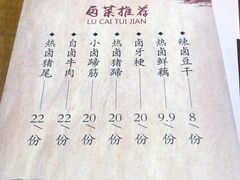 卤菜推荐
LU CAI TUI JIAN
热卤猪尾 22/份
自卤牛肉 22/份
小卤蹄筋 20/份
热卤猪蹄 20/份
卤牙梗 20/份
热卤鲜藕 9.9/份
辣卤豆干 8/份